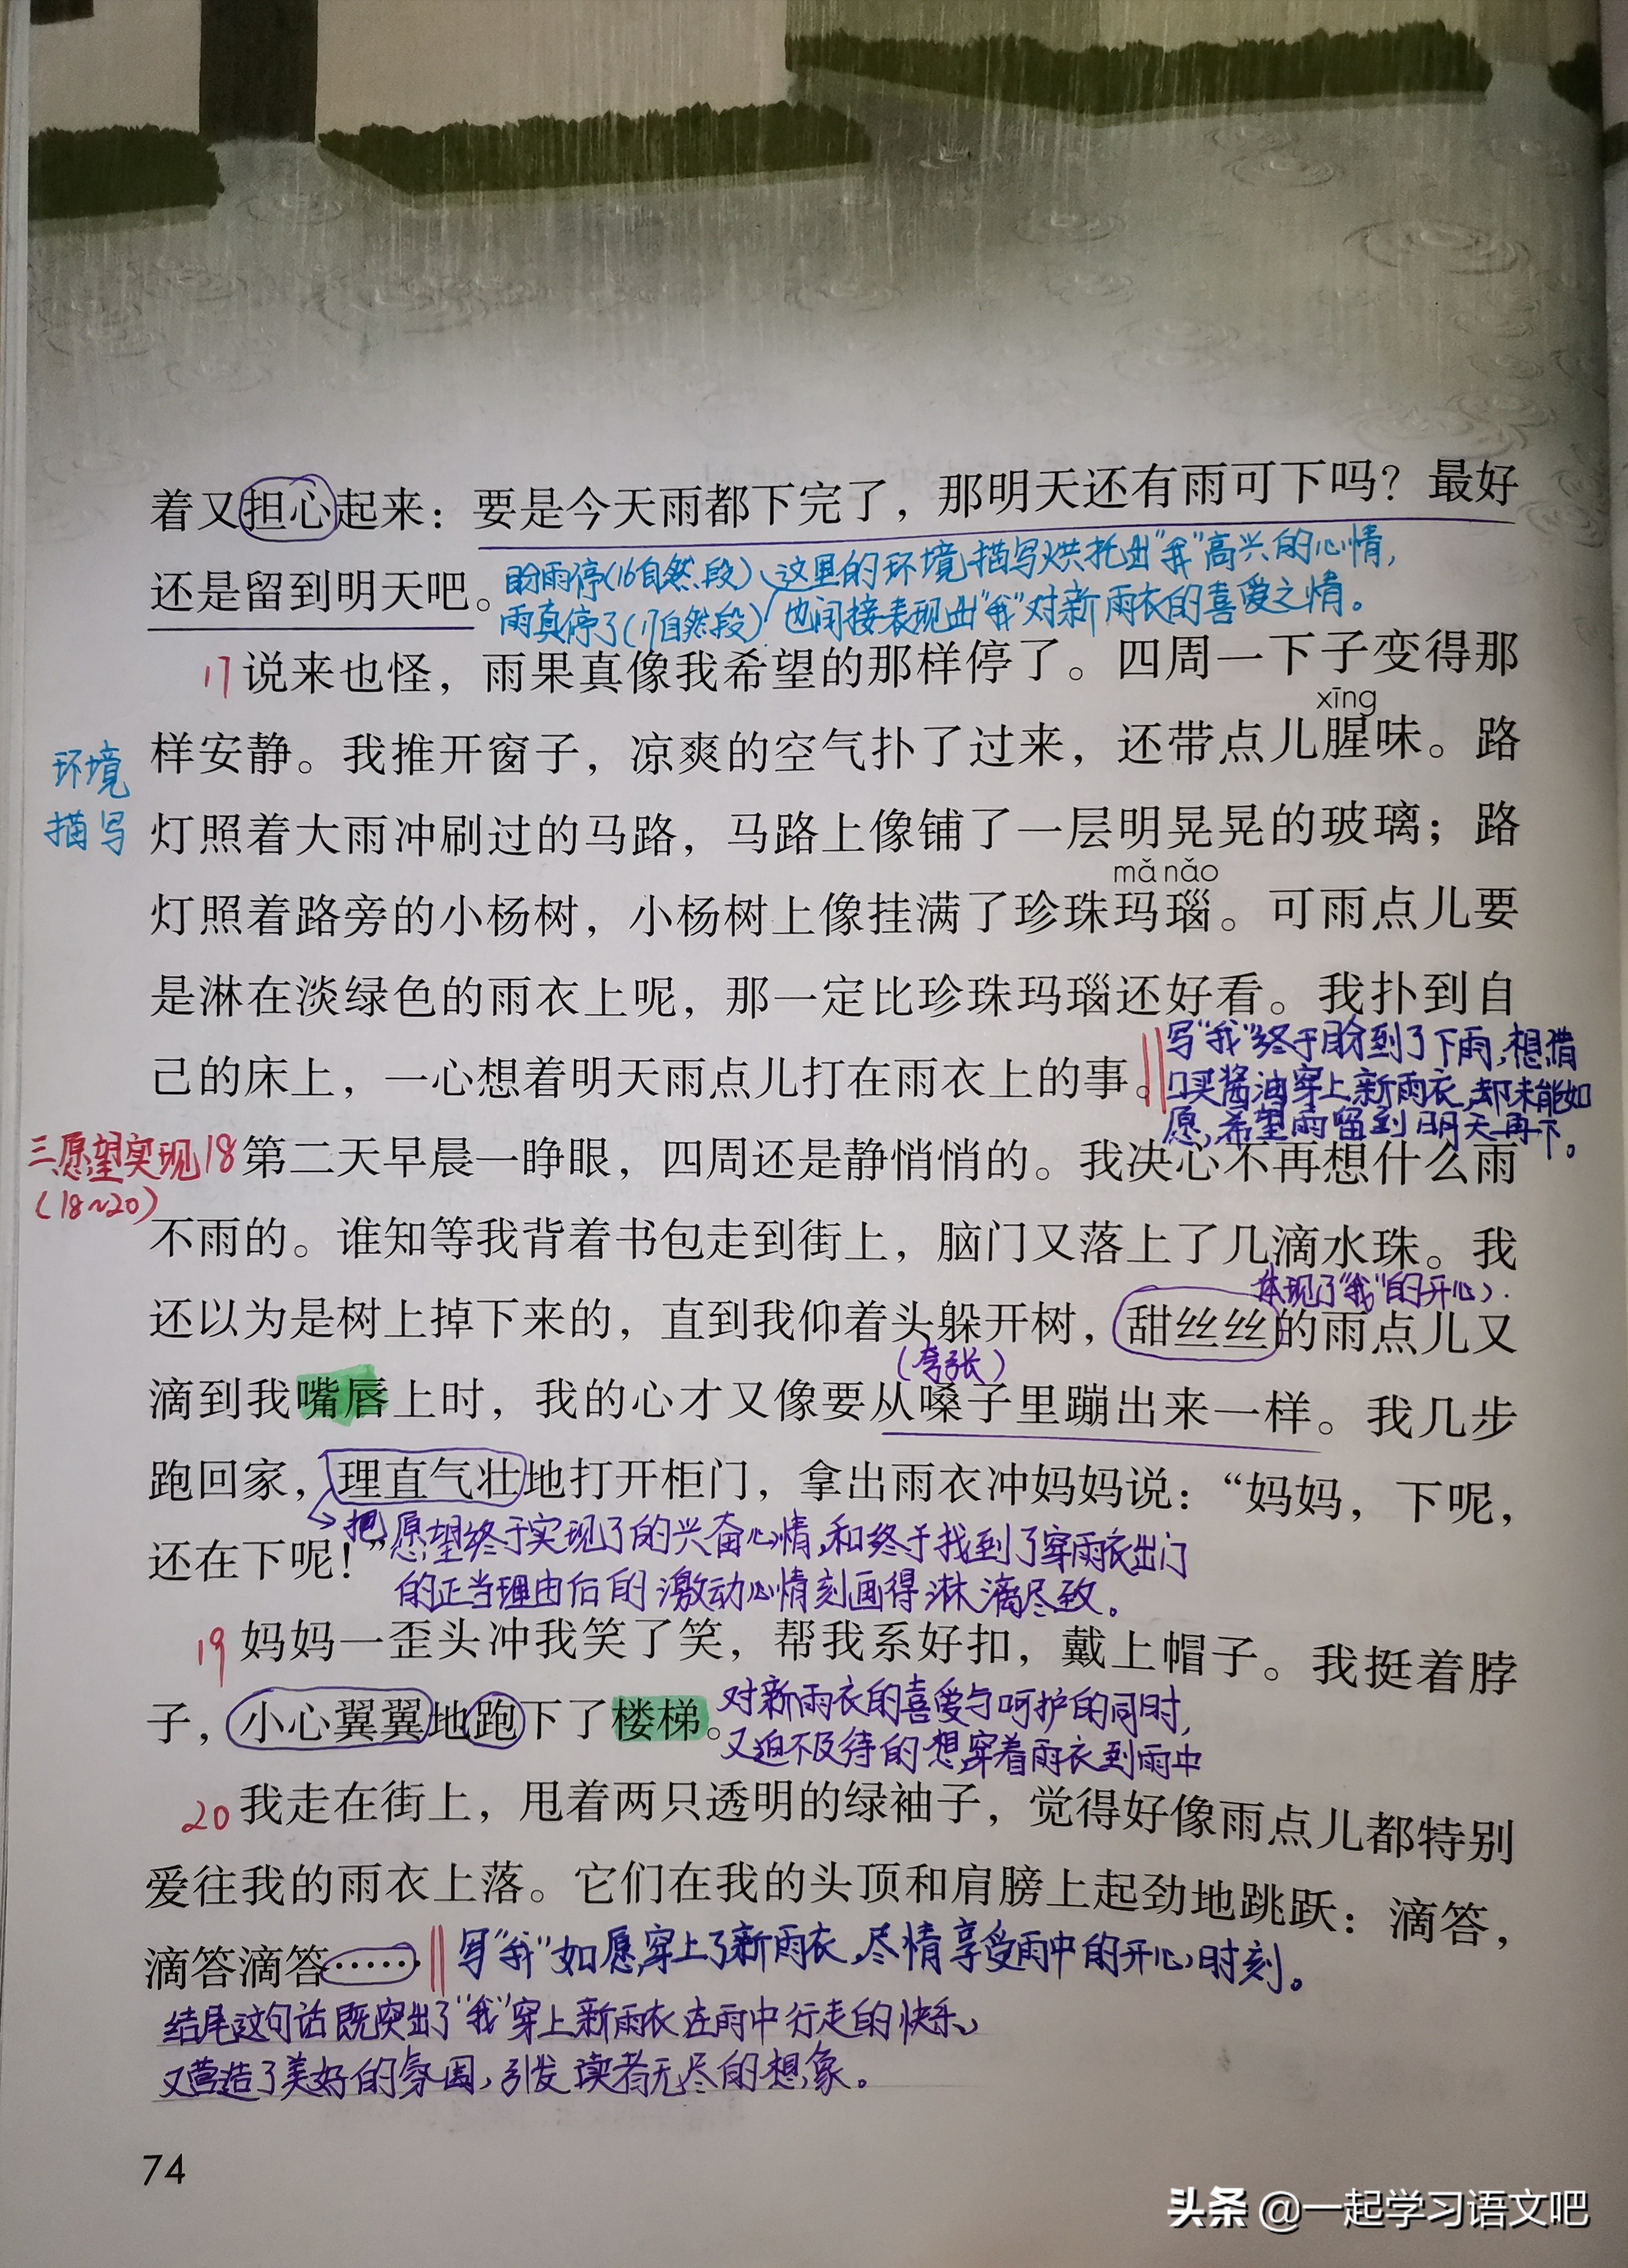 着又担心起来：要是今天雨都下完了，那明天还有雨可下吗？最好
盼雨停(16自然段)、这里的环境描写烘托出"我"高兴的心情，
还是留到明天吧。
雨真停了(17自然段) 也间接表现出"我"对新雨衣的喜爱之情。
17 说来也怪，雨果真像我希望的那样停了。四周一下子变得那
xīng
样安静。我推开窗子，凉爽的空气扑了过来，还带点儿腥味。路
环境
描写
灯照着大雨冲刷过的马路，马路上像铺了一层明晃晃的玻璃；路
mǎ nǎo
灯照着路旁的小杨树，小杨树上像挂满了珍珠玛瑙。可雨点儿要
是淋在淡绿色的雨衣上呢，那一定比珍珠玛瑙还好看。我扑到自
己的床上，一心想着明天雨点儿打在雨衣上的事。
写"我"终于盼到了下雨，想借
口买酱油穿上新雨衣，却未能如
愿，希望雨留到明天再下。
三愿望实现
(18~20)
18 第二天早晨一睁眼，四周还是静悄悄的。我决心不再想什么雨
不雨的。谁知等我背着书包走到街上，脑门又落上了几滴水珠。我
体现了"我"的开心
还以为是树上掉下来的，直到我仰着头躲开树，甜丝丝的雨点儿又
(夸张)
滴到我嘴唇上时，我的心才又像要从嗓子里蹦出来一样。我几步
跑回家，理直气壮地打开柜门，拿出雨衣冲妈妈说：“妈妈，下呢，
还在下呢！”
把愿望终于实现了的兴奋心情，和终于找到了穿雨衣出门
的正当理由后的激动心情刻画得淋漓尽致。
19 妈妈一歪头冲我笑了笑，帮我系好扣，戴上帽子。我挺着脖
子，小心翼翼地跑下了楼梯。
对新雨衣的喜爱与呵护的同时，
又迫不及待的想穿着雨衣到雨中
20 我走在街上，甩着两只透明的绿袖子，觉得好像雨点儿都特别
爱往我的雨衣上落。它们在我的头顶和肩膀上起劲地跳跃：滴答，
滴答滴答……
写"我"如愿穿上了新雨衣，尽情享受雨中的开心时刻。
结尾这句话既突出了"我"穿上新雨衣在雨中行走的快乐，
又营造了美好的氛围，引发读者无尽的想象。
74
头条 @一起学习语文吧